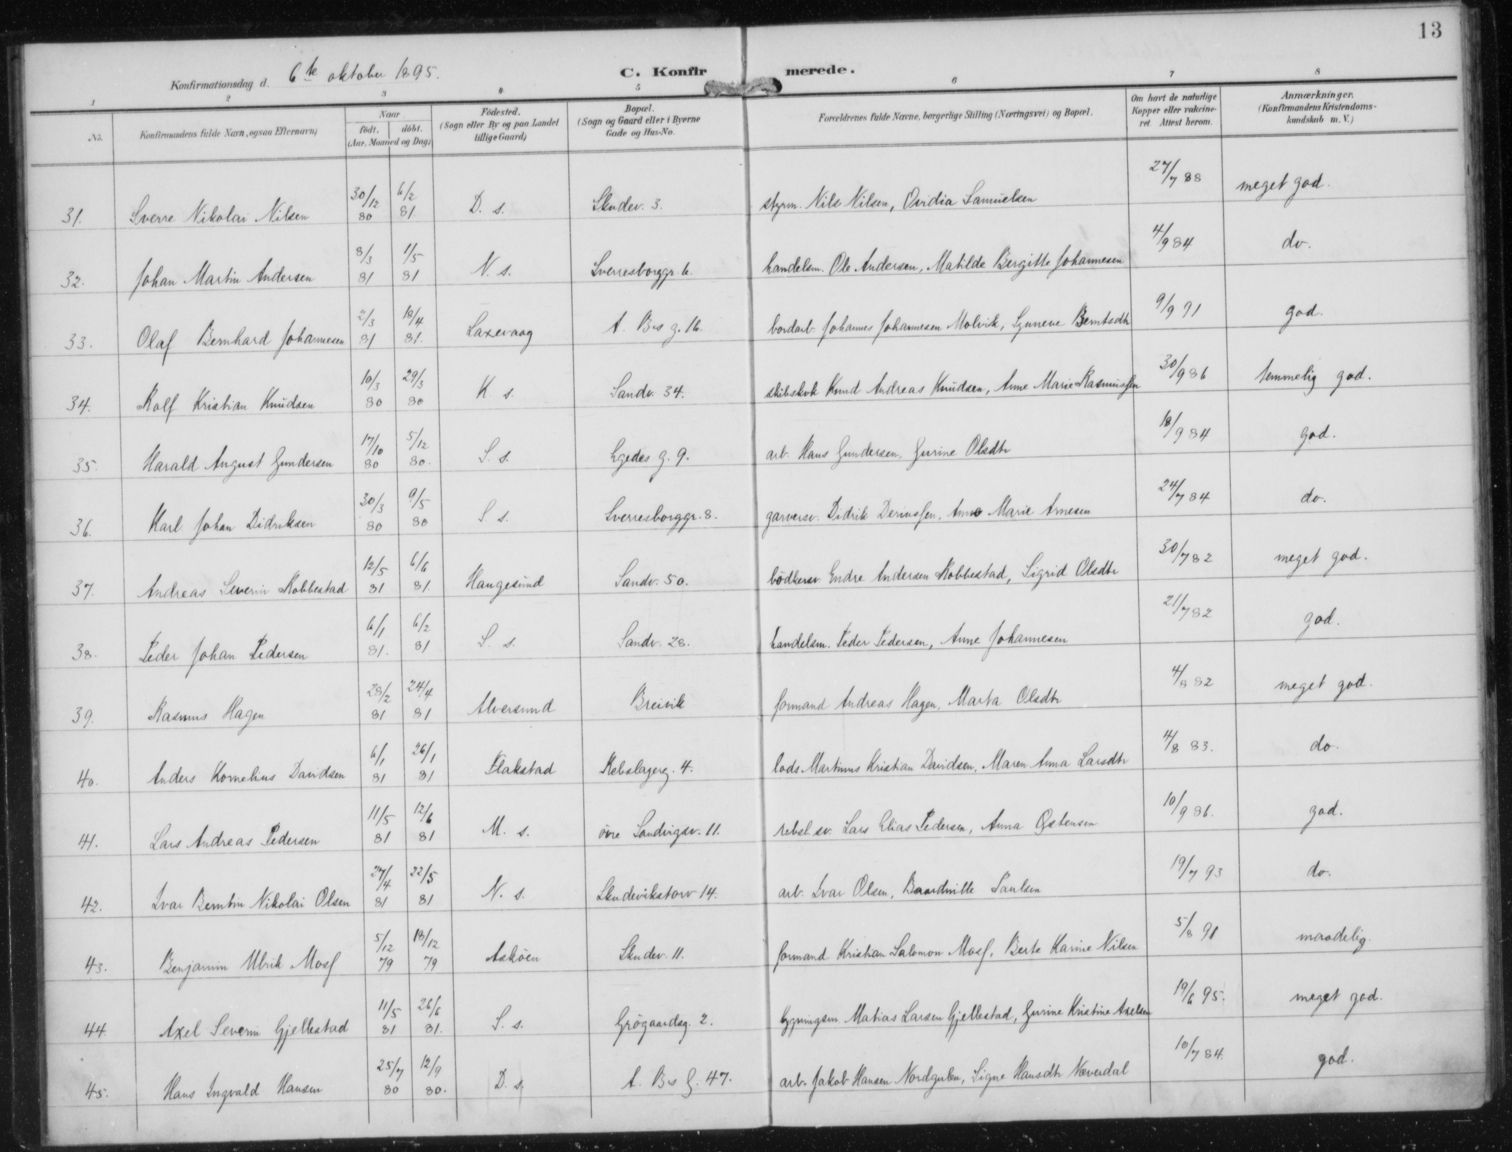 13
Konfirmationsdag d. 6te oktober 1895.
C. Konfirmerede.
1 2 3 4 5 6 7 8
No. Konfirmandens fulde Navn, ogsaa Efternavn) Naar født. døbt. (Aar, Maaned og Dag) Fødested. (Sogn eller By og paa Landet tillige Gaard) Bopæl. (Sogn og Gaard eller i Byerne Gade og Hus-No. Forældrenes fulde Navne, borgerlige Stilling (Næringsvei) og Bopæl. Om havt de naturlige Kopper eller vakcineret Attest herom. Anmærkninger. (Konfirmandens Kristendomskundskab m. V.)
31. Sverre Nikolai Nilsen 30/12 80 6/2 81 D. s. Skudev. 3. styrm. Nils Nilsen, Ovidia Samuelsen 27/7 88 meget god.
32. Johan Martin Andersen 8/3 81 1/5 81 N. s. Sverresborggr. 6. handelsm. Ole Andersen, Matilde Bergitte Johannesen 4/9 84 do.
33. Olaf Bernhard Johannesen 2/3 81 18/4 81. Laxevaag A. B-s g. 16. bordarb. Johannes Johannesen Molvik, Gunene Berntsdtr 9/9 91 god.
34. Rolf Kristian Knudsen 10/3 80 29/3 80 K s. Sandv. 34. skibskok Knud Andreas Knudsen, Anne Marie Rasmussen 30/9 86 temmelig god.
35. Harald August Gundersen 17/10 80 5/12 80. S. s. Egedes g. 9. arb. Hans Gundersen, Gurine Olsdtr 18/9 84 god.
36. Karl Johan Didriksen 30/3 80 9/5 80 S s. Sverresborggr. 8. garversv. Didrik Deriussen, Anne Marie Arnesen 24/7 84 do.
37. Andreas Severin Kobbestad 12/5 81 6/6 81. Haugesund Sandv. 50. bödkersv. Endre Andersen Kobbestad, Sigrid Olsdtr 30/7 82 meget god.
38. Peder Johan Pedersen 6/1 81. 6/2 81 S. s. Sandv. 28. handelsm. Peder Pedersen, Anne Johannesen 21/7 82 god.
39. Rasmus Hagen 28/2 81 24/4 81 Alversund Breivik formand Andreas Hagen, Marta Olsdtr 4/8 82 meget god.
40. Anders Kornelius Davidsen 6/1 81 26/1 81 Flakstad Rebslagerg. 4. lods. Martinus Kristian Davidsen, Maren Anna Larsdtr 4/8 83. do.
41. Lars Andreas Pedersen 11/5 81 12/6 81 M. s. övre Sandvigsv. 11. rebsl.sv. Lars Elias Pedersen, Anna Østensen 10/9 86. god.
42. Ivar Berntin Nikolai Olsen 27/4 81 22/5 81 N. s. Skudevikstorv 14. arb. Ivar Olsen, Baardnille Paulsen 19/7 93 do.
43. Benjamin Ulrik Mosf 5/12 79 18/12 79 Askøen Skudev. 11. formand Kristian Salomon Mosf, Berte Karine Nilsen 5/8 91 maadelig.
44. Axel Severin Gjellestad 11/5 81 26/6 81. S. s. Grøgaardsg. 2. bygningsm. Matias Larsen Gjellestad, Gurine Kristine Axelsen 19/6 95. meget god.
45. Hans Ingvald Hansen 25/7 80 12/9 80. D. s. A. B-s g. 47. arb. Jakob Hansen Nordgulen, Signe Hansdtr Næverdal 10/7 84. god.